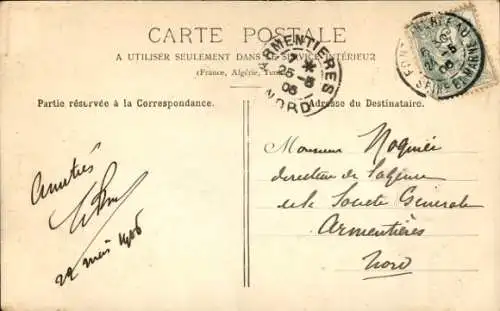 CARTE POSTALE
A UTILISER SEULEMENT DANS LE SERVICE INTÉRIEUR
(France, Algérie, Tunisie)
ARMENTIERES
25-5
06
NORD
SEINE ET MARNE
Partie réservée à la Correspondance.
Adresse du Destinataire.
Amitiés
22 mai 1906
Monsieur Noguier
directeur de l'agence
de la Société Générale
Armentières
Nord